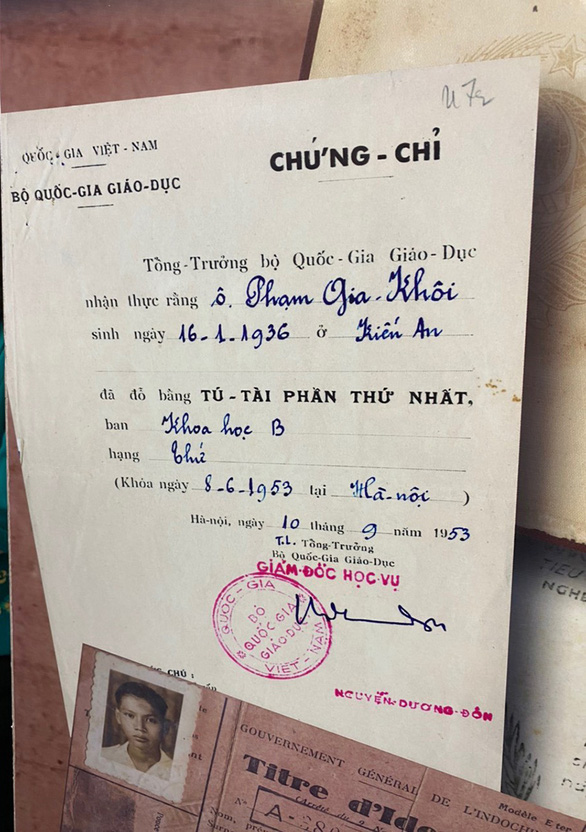 U72
QUỐC-GIA VIỆT-NAM
BỘ QUỐC-GIA GIÁO-DỤC
CHỨNG-CHỈ
Tổng-Trưởng bộ Quốc-Gia Giáo-Dục
nhận thực rằng ô. Phạm Gia-Khôi
sinh ngày 16-1-1936 ở Kiến An
đã đỗ bằng TÚ-TÀI PHẦN THỨ NHẤT,
ban Khoa học B
hạng thứ
(Khóa ngày 8-6-1953 tại Hà-nội)
Hà-nội, ngày 10 tháng 9 năm 1953
T.L. Tổng-Trưởng
Bộ Quốc-Gia Giáo-Dục
GIÁM-ĐỐC HỌC-VỤ
QUỐC-GIA VIỆT-NAM
BỘ
QUỐC-GIA
GIÁO-DỤC
NGUYỄN-DƯƠNG-ĐÔN
CHÚ :
GOUVERNEMENT GÉNÉRAL DE L'INDOCH
Modèle
Titre d'Ide
Nº A-
Nom,